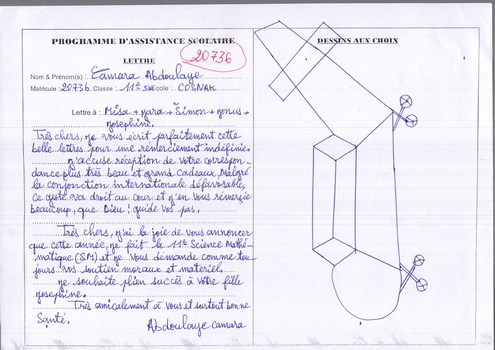 PROGRAMME D'ASSISTANCE SCOLAIRE
20736
LETTRE
Nom & Prénom(s) : Camara Abdoulaye
Matricule : 20736 Classe : 11è SM Ecole : COSNAK
Lettre à : Misa + yara + Šimon + yonus +
yosephine.
Très chers, je vous écrit parfaitement cette
belle lettres pour une remerciement indéfinie.
j'accuse réception de votre correspon-
dance plus très beau et grand cadeau, Malgré
la conjonction internationale défavorable,
ce geste va droit au cœur et j'en vous rémercie
beaucoup, que Dieu ! guide vos pas.
Très chers, j'ai la joie de vous annoncer
que cette année, je fait la 11è Science Mathé-
matique (SM) et je vous demande comme tou-
jours vos soutien moraux et materiel.
je souhaite plein succès à votre fille
yosephine.
Très amicalement à vous et surtout bonne
Santé.
Abdoulaye camara
DESSINS AUX CHOIX